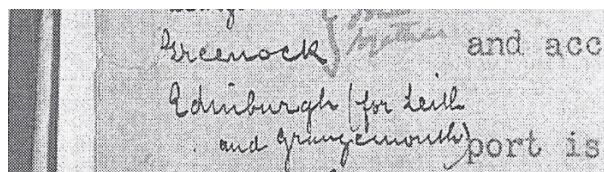 Greenock
together
and acc
Edinburgh (for Leith
and Grangemouth)
port is